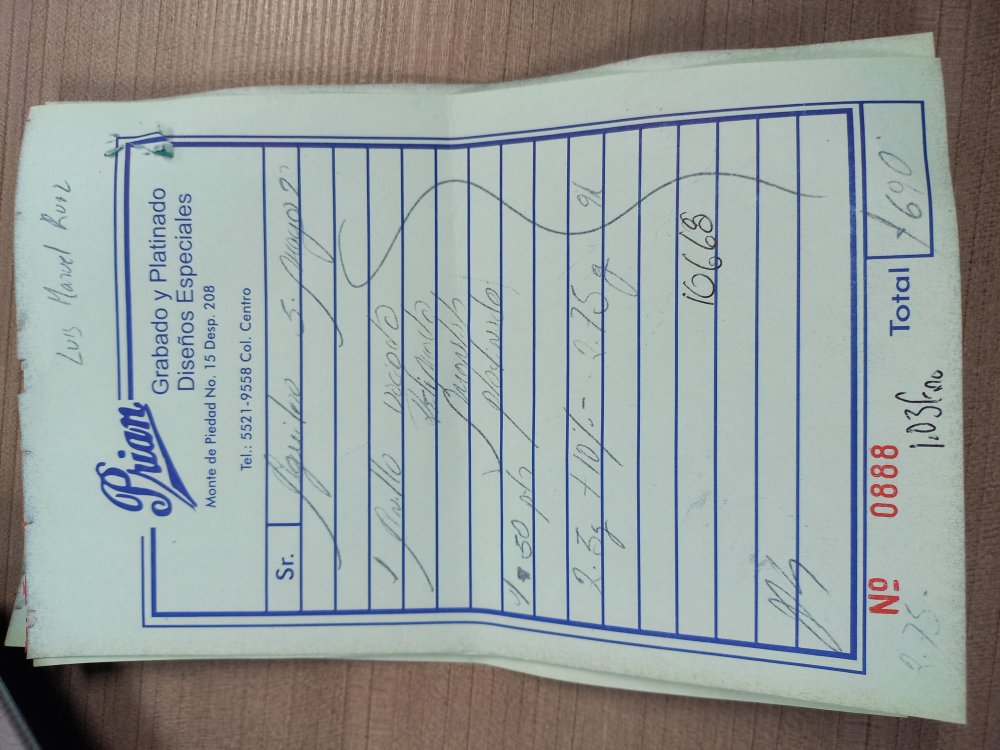 Luis Manuel Ruiz
Prian
Grabado y Platinado
Diseños Especiales
Monte de Piedad No. 15 Desp. 208
Tel.: 5521-9558 Col. Centro
Sr. Aguilar 5. mayo
1 Anillo
platinado
50 pts
2.5g +10%- 2.75 g
16668
Nº 0888 Total 1690
2.75. 1.03